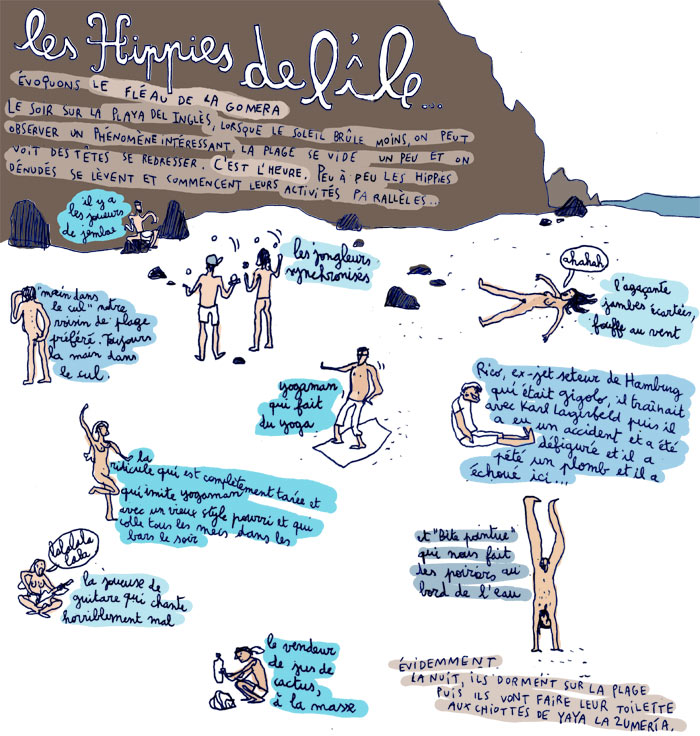 les Hippies de l'île...
ÉVOQUONS LE FLÉAU DE LA GOMERA
LE SOIR SUR LA PLAYA DEL INGLÈS, LORSQUE LE SOLEIL BRÛLE MOINS, ON PEUT
OBSERVER UN PHÉNOMÈNE INTÉRESSANT, LA PLAGE SE VIDE UN PEU ET ON
VOIT DES TÊTES SE REDRESSER. C'EST L'HEURE. PEU À PEU LES HIPPIES
DÉNUDÉS SE LÈVENT ET COMMENCENT LEURS ACTIVITÉS PARALLÈLES...
il y a
les joueurs
de jembas
les jongleurs
synchronisés
ahahah
l'agaçante
jambes écartées,
touffe au vent
"main dans
le cul" notre
voisin de plage
préféré. Toujours
la main dans
le cul.
yogaman,
qui fait
du yoga
Rico, ex-jet seteur de Hamburg
qui était gigolo, il traînait
avec Karl Lagerfeld puis il
a eu un accident et a été
défiguré et il a
pété un plomb et il a
échoué ici...
la
ridicule qui est complètement tarée et
qui imite yogaman
avec un vieux style pourri et qui
colle tous les mecs dans les
bars le soir
lalalala
lala
la joueuse de
guitare qui chante
horriblement mal
et "Bite pointue"
qui nous fait
des poiriers au
bord de l'eau
le vendeur
de jus de
cactus,
à la masse
ÉVIDEMMENT
LA NUIT, ILS DORMENT SUR LA PLAGE
PUIS ILS VONT FAIRE LEUR TOILETTE
AUX CHIOTTES DE YAYA LA ZUMERÍA.